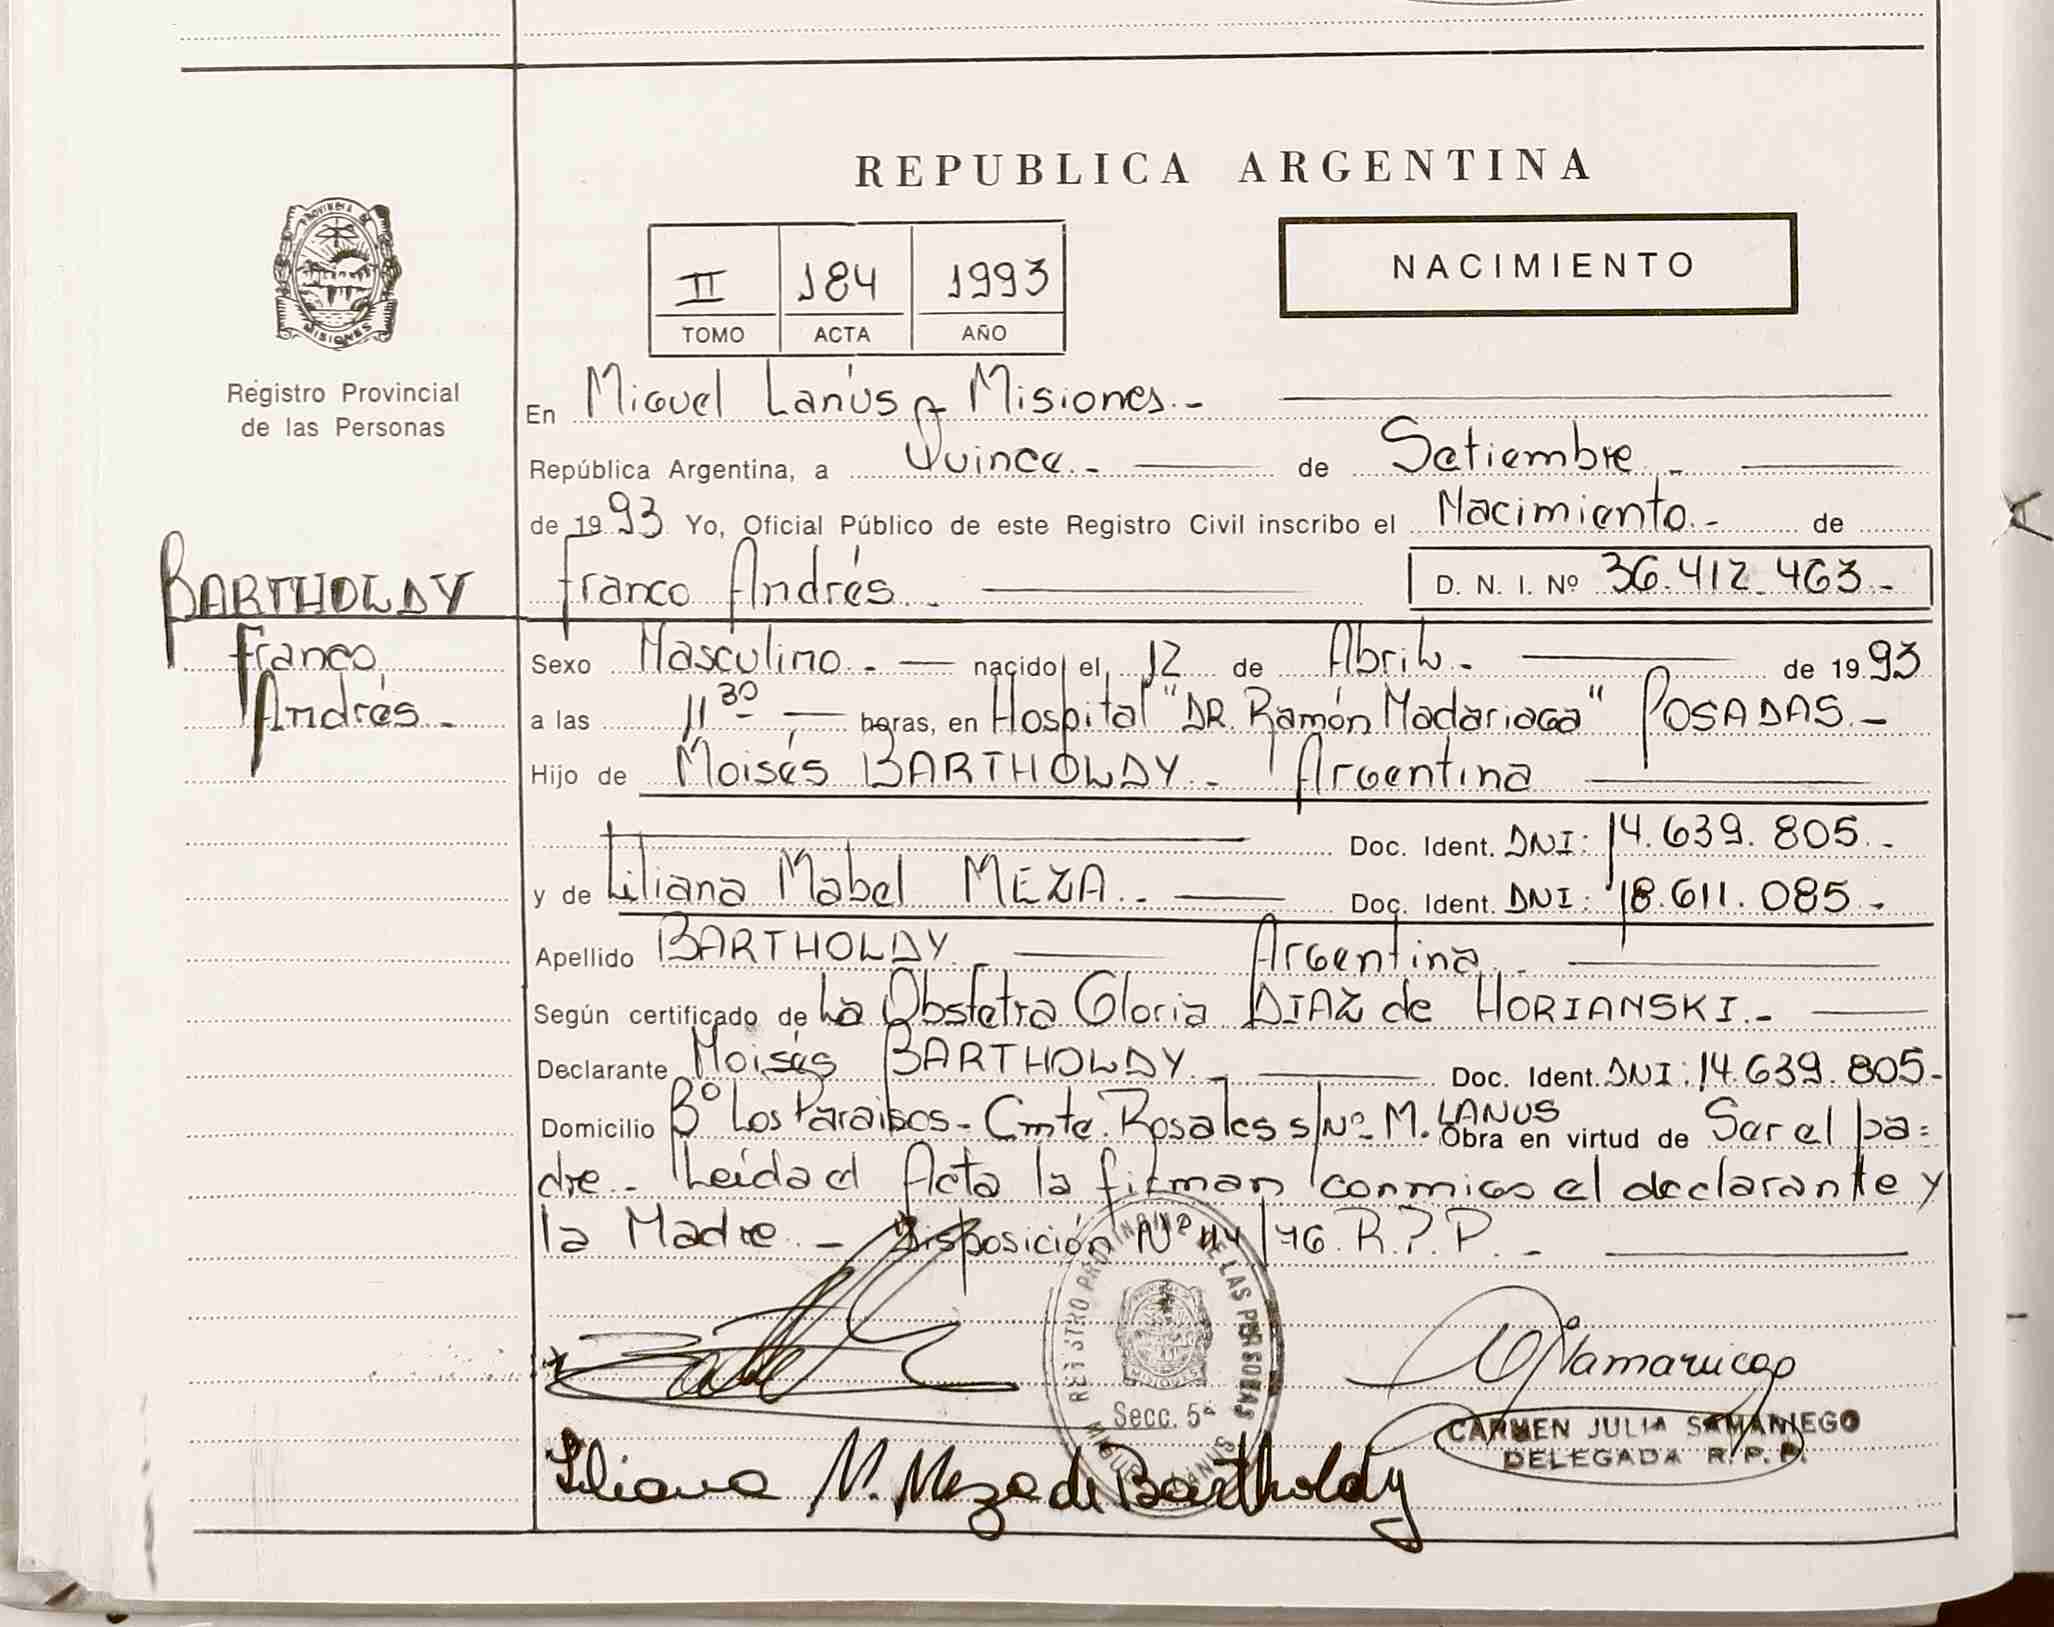 REPUBLICA ARGENTINA
PROVINCIA DE
MISIONES
Registro Provincial
de las Personas
II 184 1993
TOMO ACTA AÑO
NACIMIENTO
En Miguel Lanús - Misiones.-
República Argentina, a Quince.- de Setiembre.-
de 1993 Yo, Oficial Público de este Registro Civil inscribo el Nacimiento.- de
BARTHOLDY
Franco
Andrés.-
Franco Andrés.- D. N. I. Nº 36.412.463.-
Sexo Masculino.- nacido el 12 de Abril.- de 1993
a las 11 30 horas, en Hospital "DR. Ramón Madariaga" POSADAS.-
Hijo de Moisés BARTHOLDY.- Argentina
Doc. Ident. DNI: 14.639.805.-
y de Liliana Mabel MEZA.- Doc. Ident. DNI: 18.611.085.-
Apellido BARTHOLDY.- Argentina.-
Según certificado de La Obstetra Gloria DIAZ de HORIANSKI.-
Declarante Moisés BARTHOLDY.- Doc. Ident. DNI: 14.639.805-
Domicilio Bº Los Paraisos- Cmte. Rosales s/Nº M. LANUS Obra en virtud de Ser el pa=
dre.- Leída el Acta la firman conmigo el declarante y
la Madre.- Disposición Nº /76 R.P.P.-
REGISTRO PROVINCIAL DE LAS PERSONAS
MISIONES
Secc. 5ª
MIGUEL LANUS
CARMEN JULIA SAMANIEGO
DELEGADA R.P.P.
Liliana M. Meza de Bartholdy